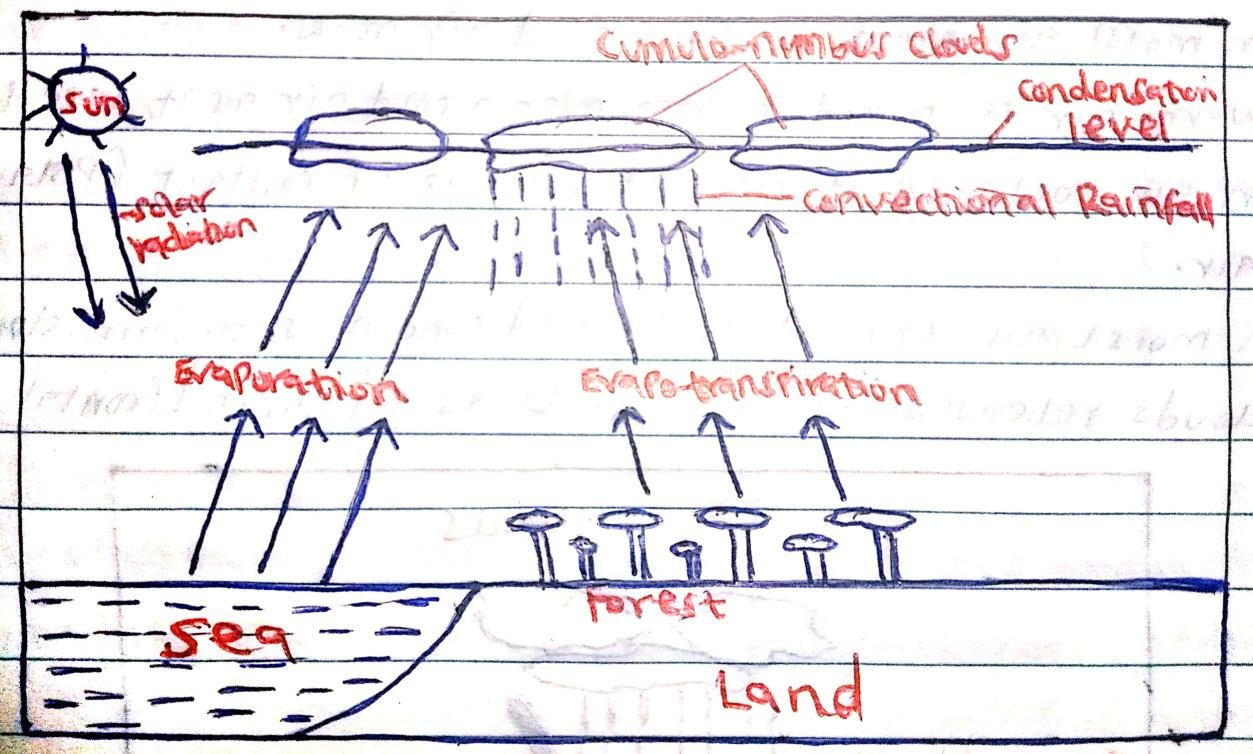 Cumulo-nimbus clouds
sun
condensation
level
solar
radiation
convectional Rainfall
Evaporation
Evapo-transpiration
forest
Sea
Land